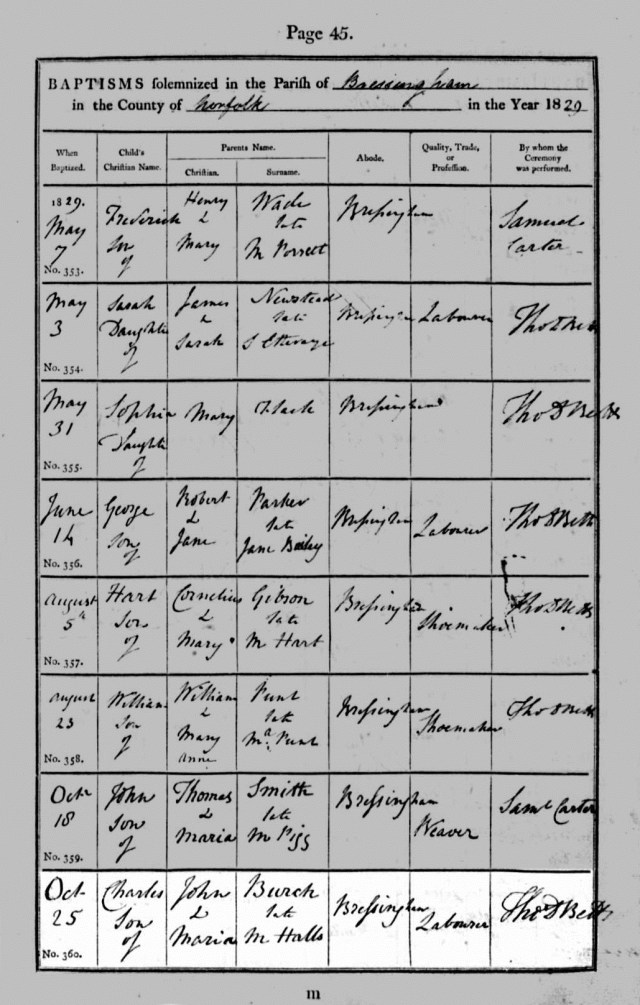 Page 45.
BAPTISMS solemnized in the Parish of Bressingham
in the County of Norfolk in the Year 1829
When Baptized.
Child's Christian Name.
Parents Name.
Christian.
Surname.
Abode.
Quality, Trade, or Profession.
By whom the Ceremony was performed.
1829.
May
7
No. 353.
Frederick
Son
of
Henry
&
Mary
Wade
late
M
Bressingham
Samuel
Carter
May
3
No. 354.
Sarah
Daughter
of
James
&
Sarah
Newstead
late
S
Bressingham
Labourer
Tho D Betts
May
31
No. 355.
Sophia
Daughter
of
Mary
Bressingham
Tho D Betts
June
14
No. 356.
George
Son
of
Robert
&
Jane
Parker
late
Jane Bailey
Bressingham
Labourer
Tho D Betts
August
5th
No. 357.
Hart
Son
of
Cornelius
&
Mary
Gibson
late
M Hart
Bressingham
Shoemaker
Tho D Betts
August
23
No. 358.
William
Son
of
William
&
Mary
Anne
Punt
late
Ma Punt
Bressingham
Shoemaker
Tho D Betts
Octr
18
No. 359.
John
Son
of
Thomas
&
Maria
Smith
late
M Pigg
Bressingham
Weaver
Saml Carter
Oct
25
No. 360.
Charles
Son
of
John
&
Maria
Burch
late
M Halls
Bressingham
Labourer
Tho D Betts
m